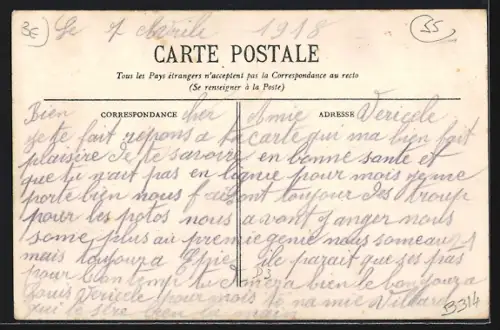 3€ Le 7 Avrile 1918 55
CARTE POSTALE
Tous les Pays étrangers n'acceptent pas la Correspondance au recto
(Se renseigner à la Poste)
CORRESPONDANCE ADRESSE
Bien cher Amie Vericele
je te fait repons a ta carte qui ma bien fait
plaisire de te savoire en bonne sante et
que tu n'ait pas en ligne pour mois je me
porte bien nous faisont toujour des
pour les potos nous avont nous
some plus au premie genie nous someau 21
mais toujour a ile parait que ses pas
pour bien temp tu bien le bonjour a
Louis Vericele pour mois to namie Villard
qui te sere bien la main
D3
B314